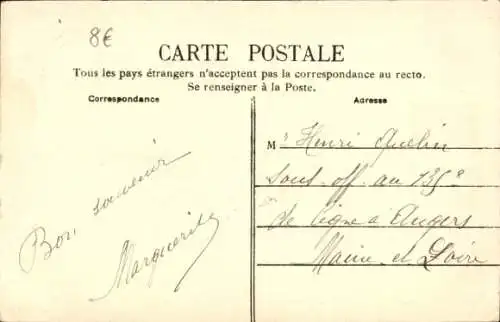 8€
CARTE POSTALE
Tous les pays étrangers n'acceptent pas la correspondance au recto.
Se renseigner à la Poste.
Correspondance
Adresse
Bon souvenir
Marguerite
Mr Henri
sous off au 135e
de ligne à Angers
Maine et Loire